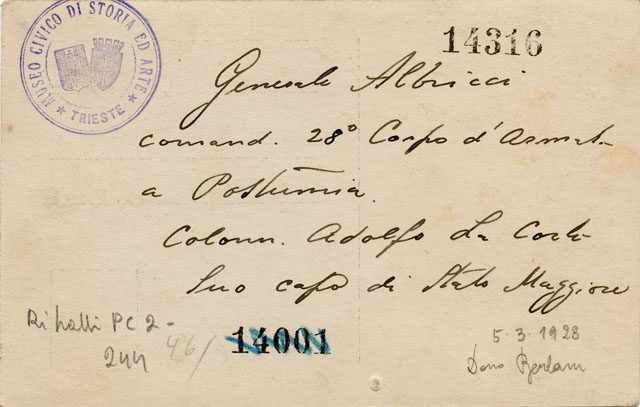 MUSEO CIVICO DI STORIA ED ARTE
★ TRIESTE ★
14316
Generale Albricci
comand. 28º Corpo d'Armat
a Postumia
Colonn. Adolfo La Corte
Suo capo di Stato Maggiore
Ritratti PC 2-
244
46/
14001
5-3-1928
Dono Berlam